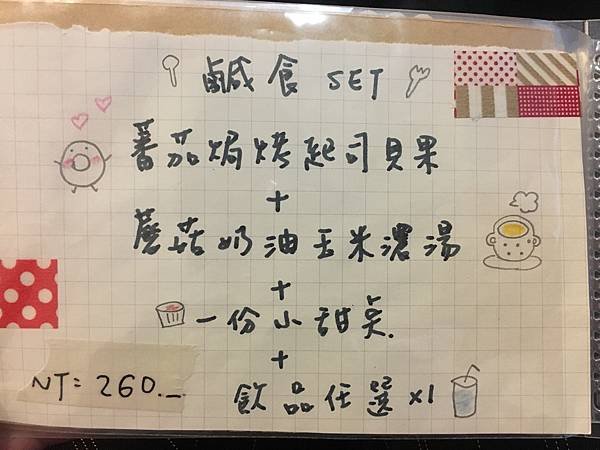 鹹食 SET
蕃茄焗烤起司貝果
+
蘑菇奶油玉米濃湯
+
一份小甜點.
+
飲品任選 x1
NT: 260._